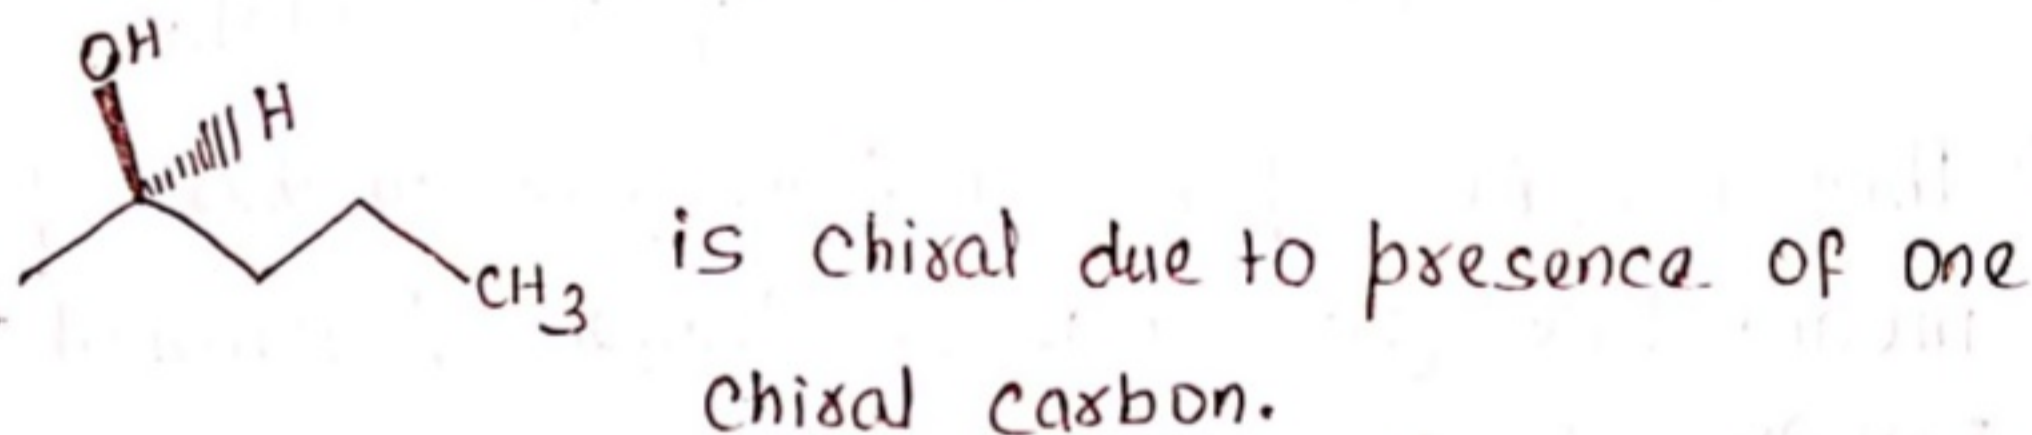 OH
H
CH3
is chiral due to presence of one
chiral carbon.